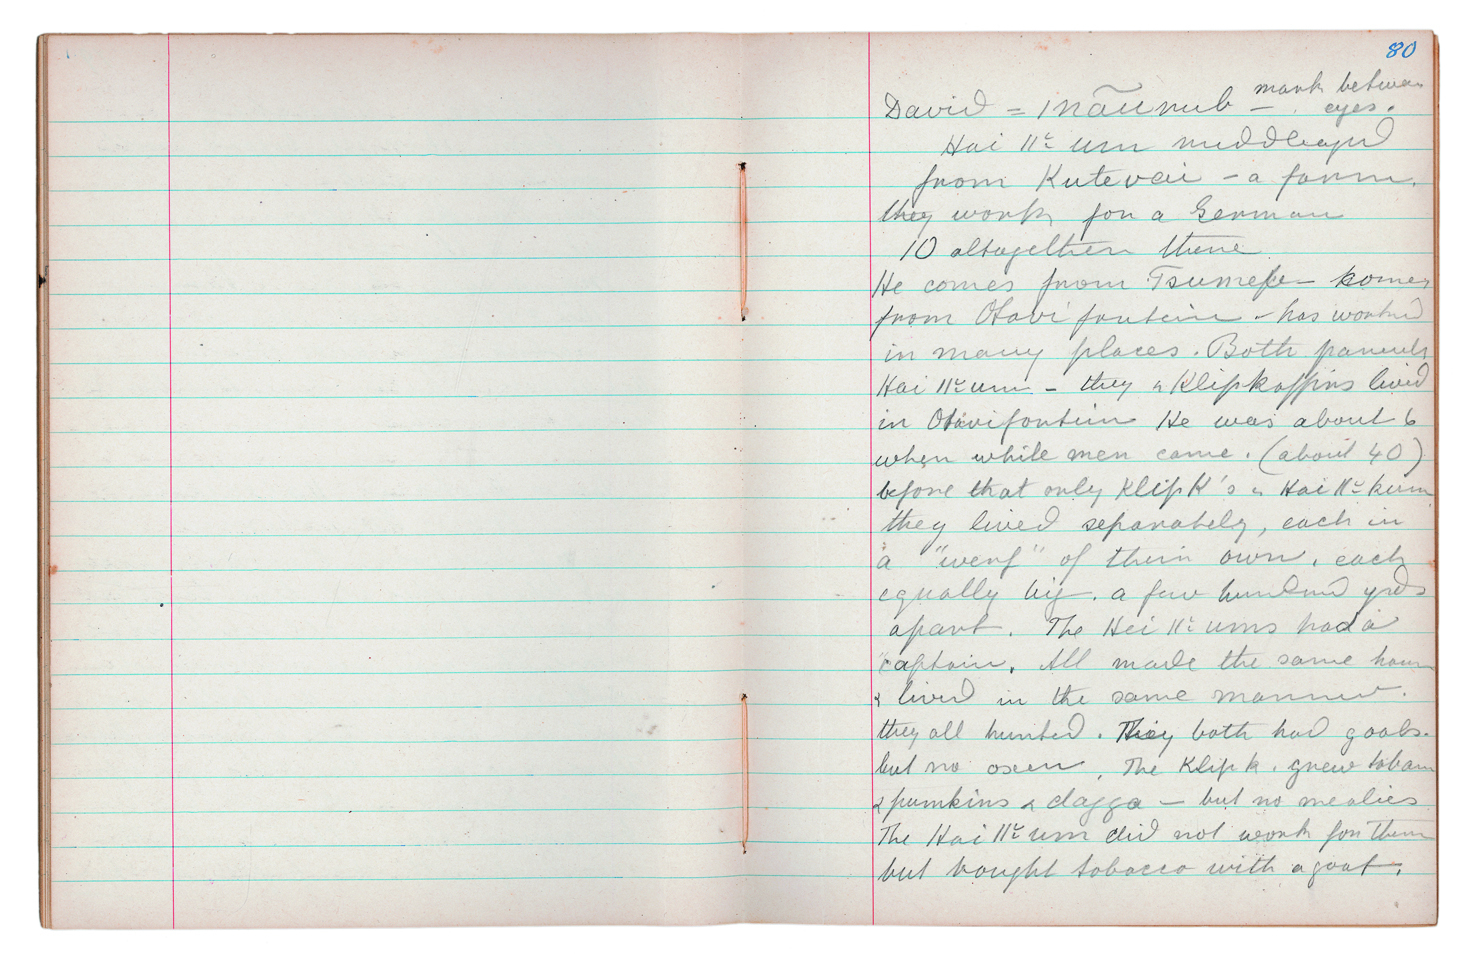 80
David = Inãunub — mark between
eyes.
Hai ||ᶜ um middleaged
from Kutevai - a farm.
they work for a German
10 altogether there
He comes from Tsumeb — comes
from Otavi fontein - has worked
in many places. Both parents
Hai ||ᶜ um - they & Klipkaffirs lived
in Otavifontein He was about 6
when white men came. (about 40)
before that only KlipK's & Hai ||ᶜ kum
they lived separately, each in
a "werf" of their own, each
equally big. a few hundred yrds
apart. The Hei ||ᶜ ums had a
"captain. All made the same
& lived in the same manner.
they all hunted. They both had goats.
but no oxen, The Klip k. grew tobacco
& pumkins & dagga — but no mealies
The Hai ||ᶜ um did not work for them
but bought tobacco with a goat.